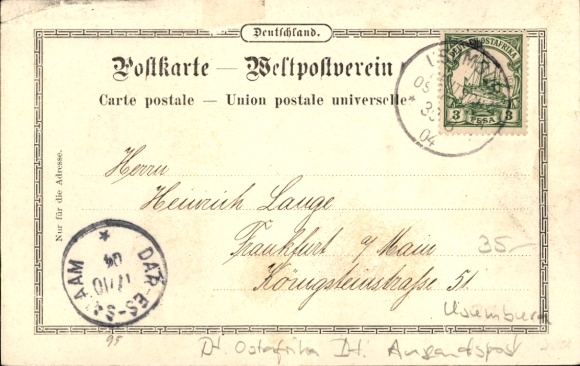 Deutschland.
Postkarte — Weltpostverein
Carte postale — Union postale universelle
DEUTSCH-OSTAFRIKA
3 PESA 3
04
Nur für die Adresse.
Herrn
Heinrich Lange
Frankfurt a/Main
Königsteinstraße 51.
35-
DAR-ES-SALAAM
04
95
Usumbura
Dt. Ostafrika